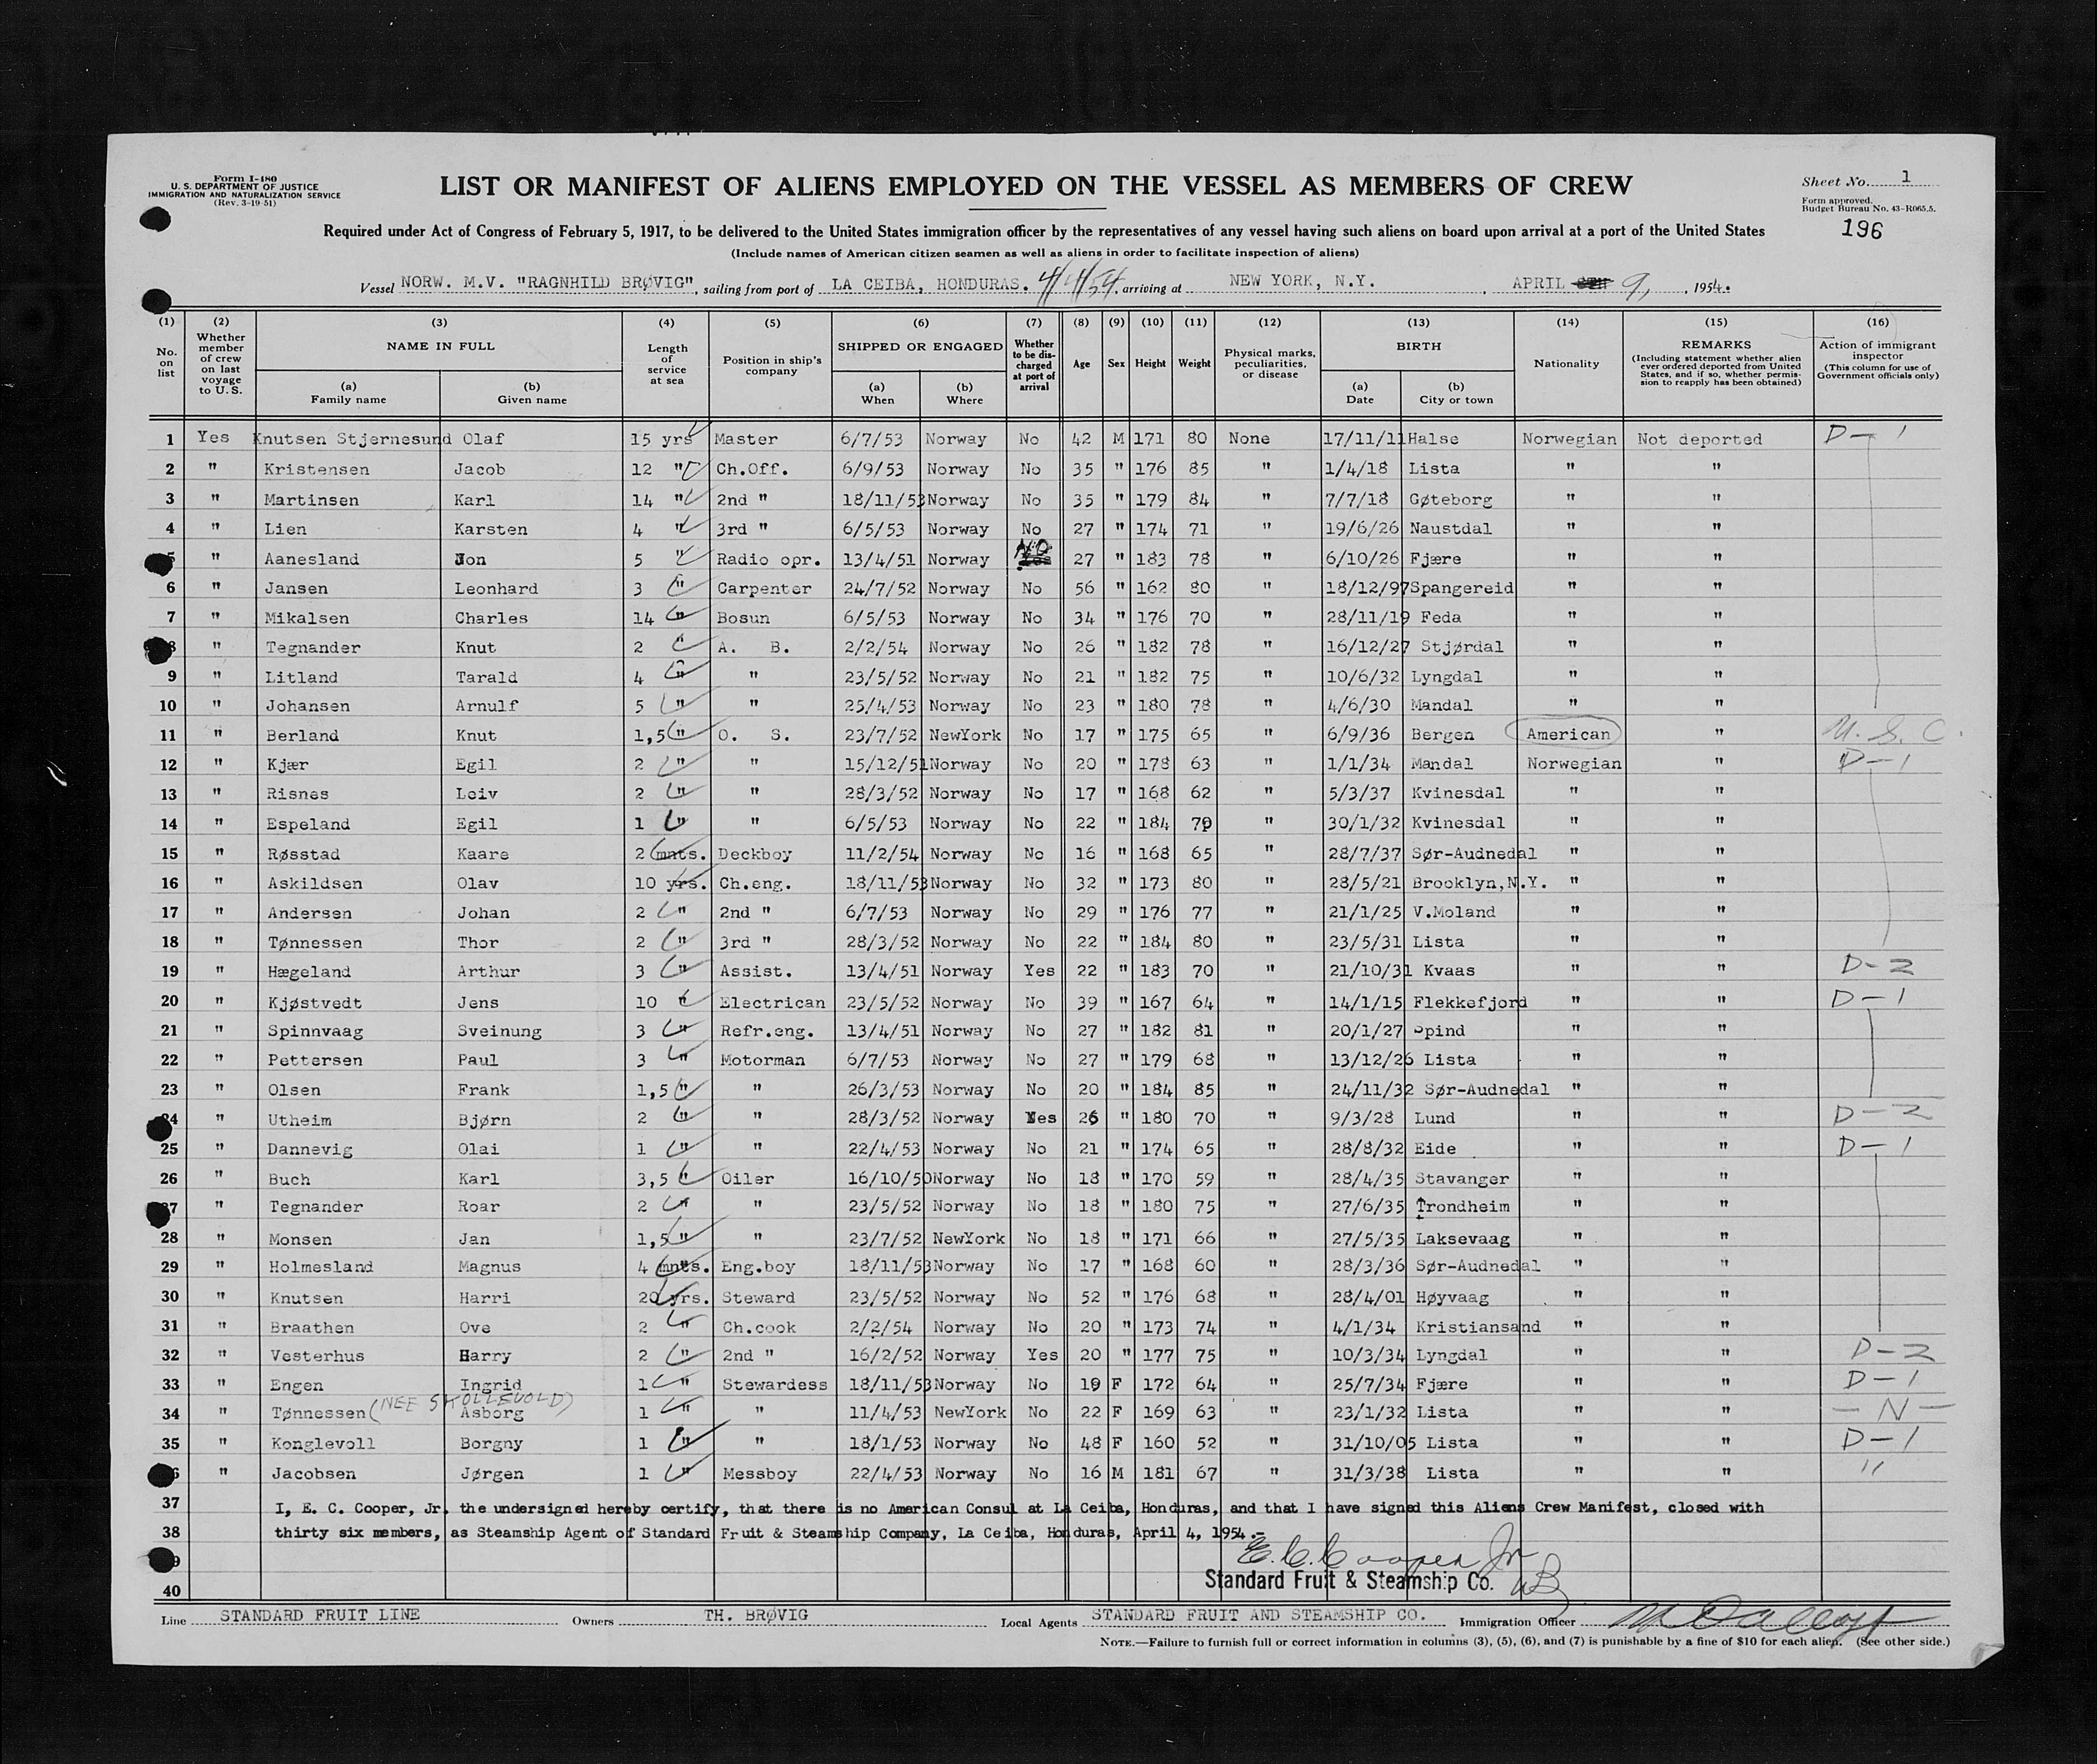 Form I-480
U. S. DEPARTMENT OF JUSTICE
IMMIGRATION AND NATURALIZATION SERVICE
(Rev. 3-19-51)
LIST OR MANIFEST OF ALIENS EMPLOYED ON THE VESSEL AS MEMBERS OF CREW
Sheet No. 1
Form approved.
Budget Bureau No. 43-R065.5.
196
Required under Act of Congress of February 5, 1917, to be delivered to the United States immigration officer by the representatives of any vessel having such aliens on board upon arrival at a port of the United States
(Include names of American citizen seamen as well as aliens in order to facilitate inspection of aliens)
Vessel NORW. M.V. "RAGNHILD BRØVIG", sailing from port of LA CEIBA, HONDURAS. 4/4/54, arriving at NEW YORK, N.Y. , APRIL 9, , 1954.
(1) (2) (3) (4) (5) (6) (7) (8) (9) (10) (11) (12) (13) (14) (15) (16)
No. on list
Whether member of crew on last voyage to U. S.
NAME IN FULL
(a) Family name
(b) Given name
Length of service at sea
Position in ship's company
SHIPPED OR ENGAGED
(a) When
(b) Where
Whether to be discharged at port of arrival
Age
Sex
Height
Weight
Physical marks, peculiarities, or disease
BIRTH
(a) Date
(b) City or town
Nationality
REMARKS
(Including statement whether alien ever ordered deported from United States, and if so, whether permission to reapply has been obtained)
Action of immigrant inspector
(This column for use of Government officials only)
1 Yes Knutsen Stjernesund Olaf 15 yrs Master 6/7/53 Norway No 42 M 171 80 None 17/11/11 Halse Norwegian Not deported D-1
2 " Kristensen Jacob 12 " Ch.Off. 6/9/53 Norway No 35 " 176 85 " 1/4/18 Lista " "
3 " Martinsen Karl 14 " 2nd " 18/11/53 Norway No 35 " 179 84 " 7/7/18 Gøteborg " "
4 " Lien Karsten 4 " 3rd " 6/5/53 Norway No 27 " 174 71 " 19/6/26 Naustdal " "
5 " Aanesland Jon 5 " Radio opr. 13/4/51 Norway NO 27 " 183 78 " 6/10/26 Fjære " "
6 " Jansen Leonhard 3 " Carpenter 24/7/52 Norway No 56 " 162 80 " 18/12/97 Spangereid " "
7 " Mikalsen Charles 14 " Bosun 6/5/53 Norway No 34 " 176 70 " 28/11/19 Feda " "
8 " Tegnander Knut 2 " A. B. 2/2/54 Norway No 26 " 182 78 " 16/12/27 Stjørdal " "
9 " Litland Tarald 4 " " 23/5/52 Norway No 21 " 182 75 " 10/6/32 Lyngdal " "
10 " Johansen Arnulf 5 " " 25/4/53 Norway No 23 " 180 78 " 4/6/30 Mandal " "
11 " Berland Knut 1,5 " O. S. 23/7/52 NewYork No 17 " 175 65 " 6/9/36 Bergen American " U.S.C.
12 " Kjær Egil 2 " " 15/12/51 Norway No 20 " 178 63 " 1/1/34 Mandal Norwegian " D-1
13 " Risnes Leiv 2 " " 28/3/52 Norway No 17 " 168 62 " 5/3/37 Kvinesdal " "
14 " Espeland Egil 1 " " 6/5/53 Norway No 22 " 184 79 " 30/1/32 Kvinesdal " "
15 " Røsstad Kaare 2 mnts. Deckboy 11/2/54 Norway No 16 " 168 65 " 28/7/37 Sør-Audnedal " "
16 " Askildsen Olav 10 yrs. Ch.eng. 18/11/53 Norway No 32 " 173 80 " 28/5/21 Brooklyn,N.Y. " "
17 " Andersen Johan 2 " 2nd " 6/7/53 Norway No 29 " 176 77 " 21/1/25 V.Moland " "
18 " Tønnessen Thor 2 " 3rd " 28/3/52 Norway No 22 " 184 80 " 23/5/31 Lista " "
19 " Hægeland Arthur 3 " Assist. 13/4/51 Norway Yes 22 " 183 70 " 21/10/31 Kvaas " " D-2
20 " Kjøstvedt Jens 10 " Electrican 23/5/52 Norway No 39 " 167 64 " 14/1/15 Flekkefjord " " D-1
21 " Spinnvaag Sveinung 3 " Refr.eng. 13/4/51 Norway No 27 " 182 81 " 20/1/27 Spind " "
22 " Pettersen Paul 3 " Motorman 6/7/53 Norway No 27 " 179 68 " 13/12/26 Lista " "
23 " Olsen Frank 1,5 " " 26/3/53 Norway No 20 " 184 85 " 24/11/32 Sør-Audnedal " "
24 " Utheim Bjørn 2 " " 28/3/52 Norway Yes 26 " 180 70 " 9/3/28 Lund " " D-2
25 " Dannevig Olai 1 " " 22/4/53 Norway No 21 " 174 65 " 28/8/32 Eide " " D-1
26 " Buch Karl 3,5 " Oiler 16/10/50 Norway No 18 " 170 59 " 28/4/35 Stavanger " "
27 " Tegnander Roar 2 " " 23/5/52 Norway No 18 " 180 75 " 27/6/35 Trondheim " "
28 " Monsen Jan 1,5 " " 23/7/52 NewYork No 18 " 171 66 " 27/5/35 Laksevaag " "
29 " Holmesland Magnus 4 mnts. Eng.boy 18/11/53 Norway No 17 " 168 60 " 28/3/36 Sør-Audnedal " "
30 " Knutsen Harri 20 yrs. Steward 23/5/52 Norway No 52 " 176 68 " 28/4/01 Høyvaag " "
31 " Braathen Ove 2 " Ch.cook 2/2/54 Norway No 20 " 173 74 " 4/1/34 Kristiansand " "
32 " Vesterhus Harry 2 " 2nd " 16/2/52 Norway Yes 20 " 177 75 " 10/3/34 Lyngdal " " D-2
33 " Engen Ingrid 1 " Stewardess 18/11/53 Norway No 19 F 172 64 " 25/7/34 Fjære " " D-1
34 " Tønnessen (NEE SKOLLEVOLD) Asborg 1 " " 11/4/53 NewYork No 22 F 169 63 " 23/1/32 Lista " " - N -
35 " Konglevoll Borgny 1 " " 18/1/53 Norway No 48 F 160 52 " 31/10/05 Lista " " D-1
36 " Jacobsen Jørgen 1 " Messboy 22/4/53 Norway No 16 M 181 67 " 31/3/38 Lista " " "
37 I, E. C. Cooper, Jr. the undersigned hereby certify, that there is no American Consul at La Ceiba, Honduras, and that I have signed this Aliens Crew Manifest, closed with
38 thirty six members, as Steamship Agent of Standard Fruit & Steamship Company, La Ceiba, Honduras, April 4, 1954.-
39 E. C. Cooper Jr
40 Standard Fruit & Steamship Co.
Line STANDARD FRUIT LINE Owners TH. BRØVIG Local Agents STANDARD FRUIT AND STEAMSHIP CO. Immigration Officer
NOTE.—Failure to furnish full or correct information in columns (3), (5), (6), and (7) is punishable by a fine of $10 for each alien. (See other side.)